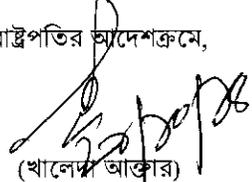 রাষ্ট্রপতির আদেশক্রমে,
(খালেদা আক্তার)